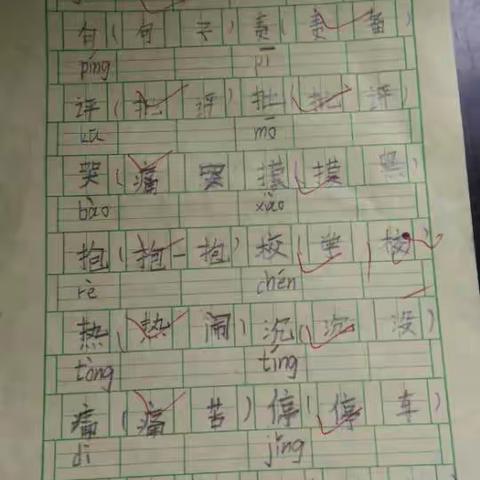 句(句子)责(责备)
píng pī
评(批评)批(批评)
kū mō
哭(痛哭)摸(摸黑)
bào xiào
抱(抱一抱)校(学校)
rè chén
热(热闹)沉(沉没)
tòng tíng
痛(痛苦)停(停车)
dì jǐng